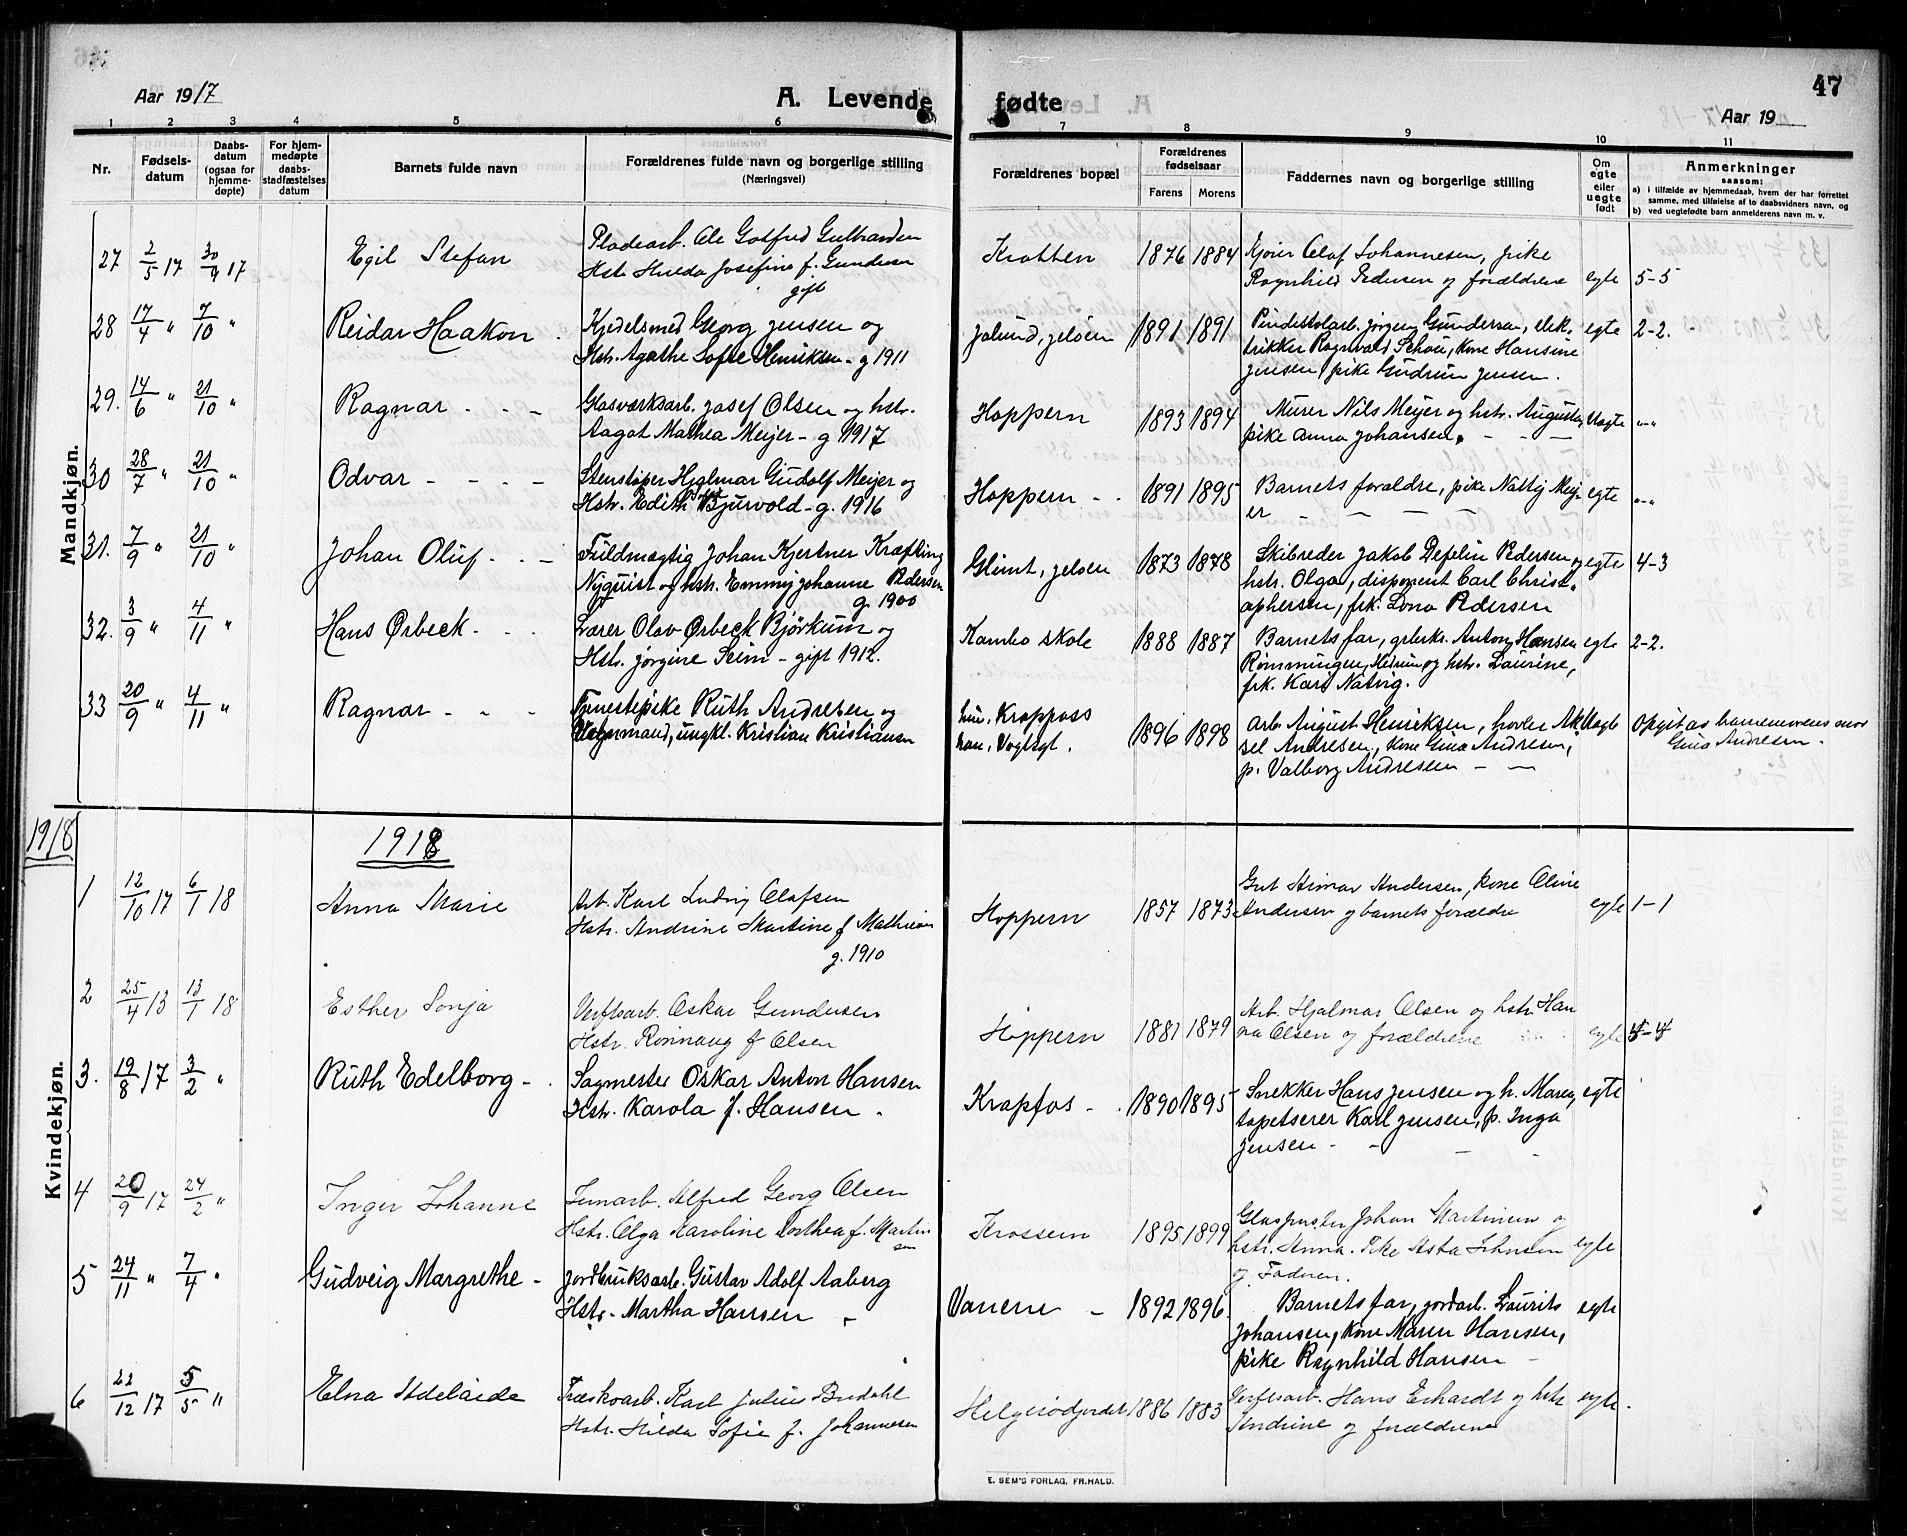 Aar 1917
A. Levende fødte
47
Aar 19
1 2 3 4 5 6 7 8 9 10 11
Nr.
Fødsels-
datum
Daabs-
datum
(ogsaa for
hjemme-
døpte)
For hjem-
medøpte
daabs-
stadfæstelses
datum
Barnets fulde navn
Forældrenes fulde navn og borgerlige stilling
(Næringsvei)
Forældrenes bopæl
Forældrenes
fødselsaar
Farens Morens
Faddernes navn og borgerlige stilling
Om
egte
eller
uegte
født
Anmerkninger
saasom:
a) i tilfælde av hjemmedaab, hvem der har forrettet
samme, med tilføielse af to daabsvidners navn, og
b) ved uegtefødte barn anmelderens navn m. v.
Mandkjøn.
27 2/5 17 30/9 17 Egil Stefan
Pladearb. Ole Gotfred Gulbrandsen
Hstr. Hulda Josefine f. Gundersen
gift
Kratten 1876 1884
Kjører Olaf Johannesen, pike
Ragnhild Pedersen og forældrene
egte 5-5
28 17/4 " 7/10 " Reidar Haakon
Kjedelsmed Georg Jensen og
Hstr. Agathe Sofie Henriksen - g 1911
Jalund, Jeløen 1891 1891
Pindestolarb. Jørgen Gundersen, elek-
trikker Ragnvald Schou, kone Hansine
Jensen, pike Gudrun Jensen.
egte 2-2.
29. 14/6 " 21/10 " Ragnar - - -
Glasværksarb. Josef Olsen og hstr.
Aagot Mathea Meijer - g 1917
Hoppern 1893 1894
Murer Nils Meijer og hstr. Augusta,
pike Anna Johansen. - - -
Uegte "-"
30 28/7 " 21/10 " Odvar - - - -
Stenstøper Hjalmar Gudolf Meijer og
Hstr. Edith Bjurvold - g. 1916
Hoppern - - 1891 1895
Barnets forældre, pike Natty Meij-
er - - - -
egte "-"
31. 7/9 " 21/10 " Johan Oluf - - -
Fuldmægtig Johan Kjertner Kræfting
Nyquist og hstr. Emmy Johanne Pedersen
g. 1900
Glimt, Jeløen 1873 1878
Skibreder Jakob Defelin Pedersen og
hstr. Olga, disponent Carl Christ-
ophersen, frk. Lona Pedersen
egte 4-3
32. 3/9 " 4/11 " Hans Ørbeck - - -
Lærer Olav Ørbeck Bjørkum og
Hstr. Jørgine Seim - gift 1912.
Kambo skole 1888 1887
Barnets far, grbrkr. Anton Hansen
Rømmingen, og hstr. Laurine,
frk. Kari Natvig.
egte 2-2.
33 20/9 " 4/11 " Ragnar - - -
Tjenestepike Ruth Andresen og
Vognmand, ungkl. Kristian Kristiansen
hun. Krapposs
han. Vogtsgt. 1896 1898
Arb. August Henriksen, høvler Ak-
sel Andresen, kone Gina Andresen,
p. Valborg Andresen - -
Uegte Opgit as barnemorens mor
Gina Andresen.
1918
1918
Kvindekjøn.
1 12/10 17 6/1 18 Anna Marie
Arb. Karl Ludvig Olafsen
Hstr. Andrine Martine f Mathiesen
g. 1910
Hoppern 1857 1873
Gut Andersen, kone Oline
Andersen og barnets forældre
egte 1-1
2 25/4 13 13/1 18 Esther Sonja
Verftsarb. Oskar Gundersen
Hstr. Rønnaug f Olsen
Hoppern 1881 1879
Arb. Hjalmar Olsen og hstr. Han
na Olsen og forældrene
egte
3. 19/8 17 3/2 " Ruth Edelborg -
Sagmester Oskar Anton Hansen
Hstr. Karola f. Hansen -
Krapfos - 1890 1895
Snekker Hans Jensen og h. Maren,
tapetserer Karl Jensen, p. Inga
Jensen - - - -
egte
4 20/9 17 24/2 " Inger Johanne
Alfred Georg Olsen
Hstr. Olga Karoline Dorthea f. Martin
sen
Krossern 1895 1899
Glaspuster Johan Martinsen og
hstr. Anna. Pike Asta Johnsen
og Faderen.
egte
5 24/11 " 7/4 " Gudveig Margrethe -
Jordbruksarb. Gustav Adolf Aaberg
Hstr. Martha Hansen -
Vanem - 1892 1896
Barnets far, jordarb. Laurits
Johansen, kone Maren Hansen,
pike Ragnhild Hansen -
egte
6 22/12 17 5/5 " Elna Adelaide
Træskoarb. Karl Julius Bredahl
Hstr. Hilda Sofie f. Johannesen
Helgerødjordet 1886 1883
Verftsarb. Hans Erhardt og hstr
Andrine og forældrene
egte.
E. SEM'S FORLAG, FR.HALD.